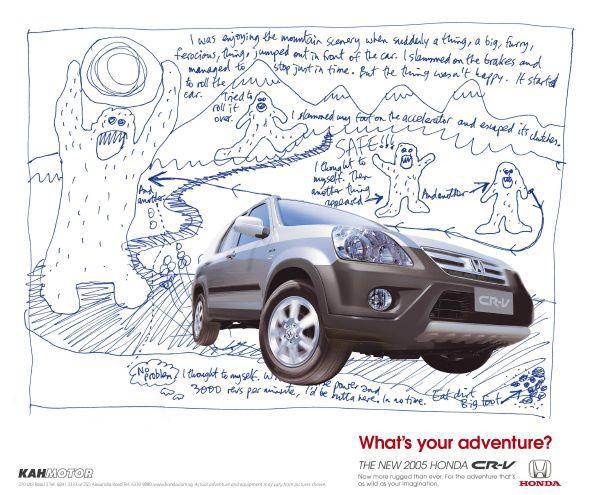 I was enjoying the mountain scenery when suddenly a thing, a big, furry,
ferocious, thing, jumped out in front of the car. I slammed on the brakes and
managed to stop just in time. But the thing wasn't happy. It started
to roll the
car.
Tried to
roll it
over.
I slammed my foot on the accelerator and escaped its clutches.
SAFE!!!
I thought to
myself. Then
another thing
appeared
And another
And
another
CR-V
No
problem,
I thought to myself. power and
3000 revs per minute, I'd be outta here. In no time.
Eat dirt
Big foot
What's your adventure?
KAHMOTOR
THE NEW 2005 HONDA CR-V
Now more rugged than ever. For the adventure that's
as wild as your imagination.
HONDA
Actual adventure and equipment may vary from pictures shown.